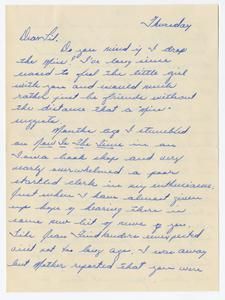 Thursday
Dear Lt.
Do you mind if I drop
the "Miss"? I've long since
ceased to feel the little girl
with you and would much
rather just be friends without
the distance that a "Miss"
suggests.
Months ago I stumbled
on Now Is The Time in an
Iowa book shop and very
nearly overwhelmed a poor
startled clerk in my enthusiasm.
Just when I have almost given
up hope of hearing there in
some new bit of news of you.
Like Jean unexpected
visit not so long ago. I was away
but Mother reported that you were